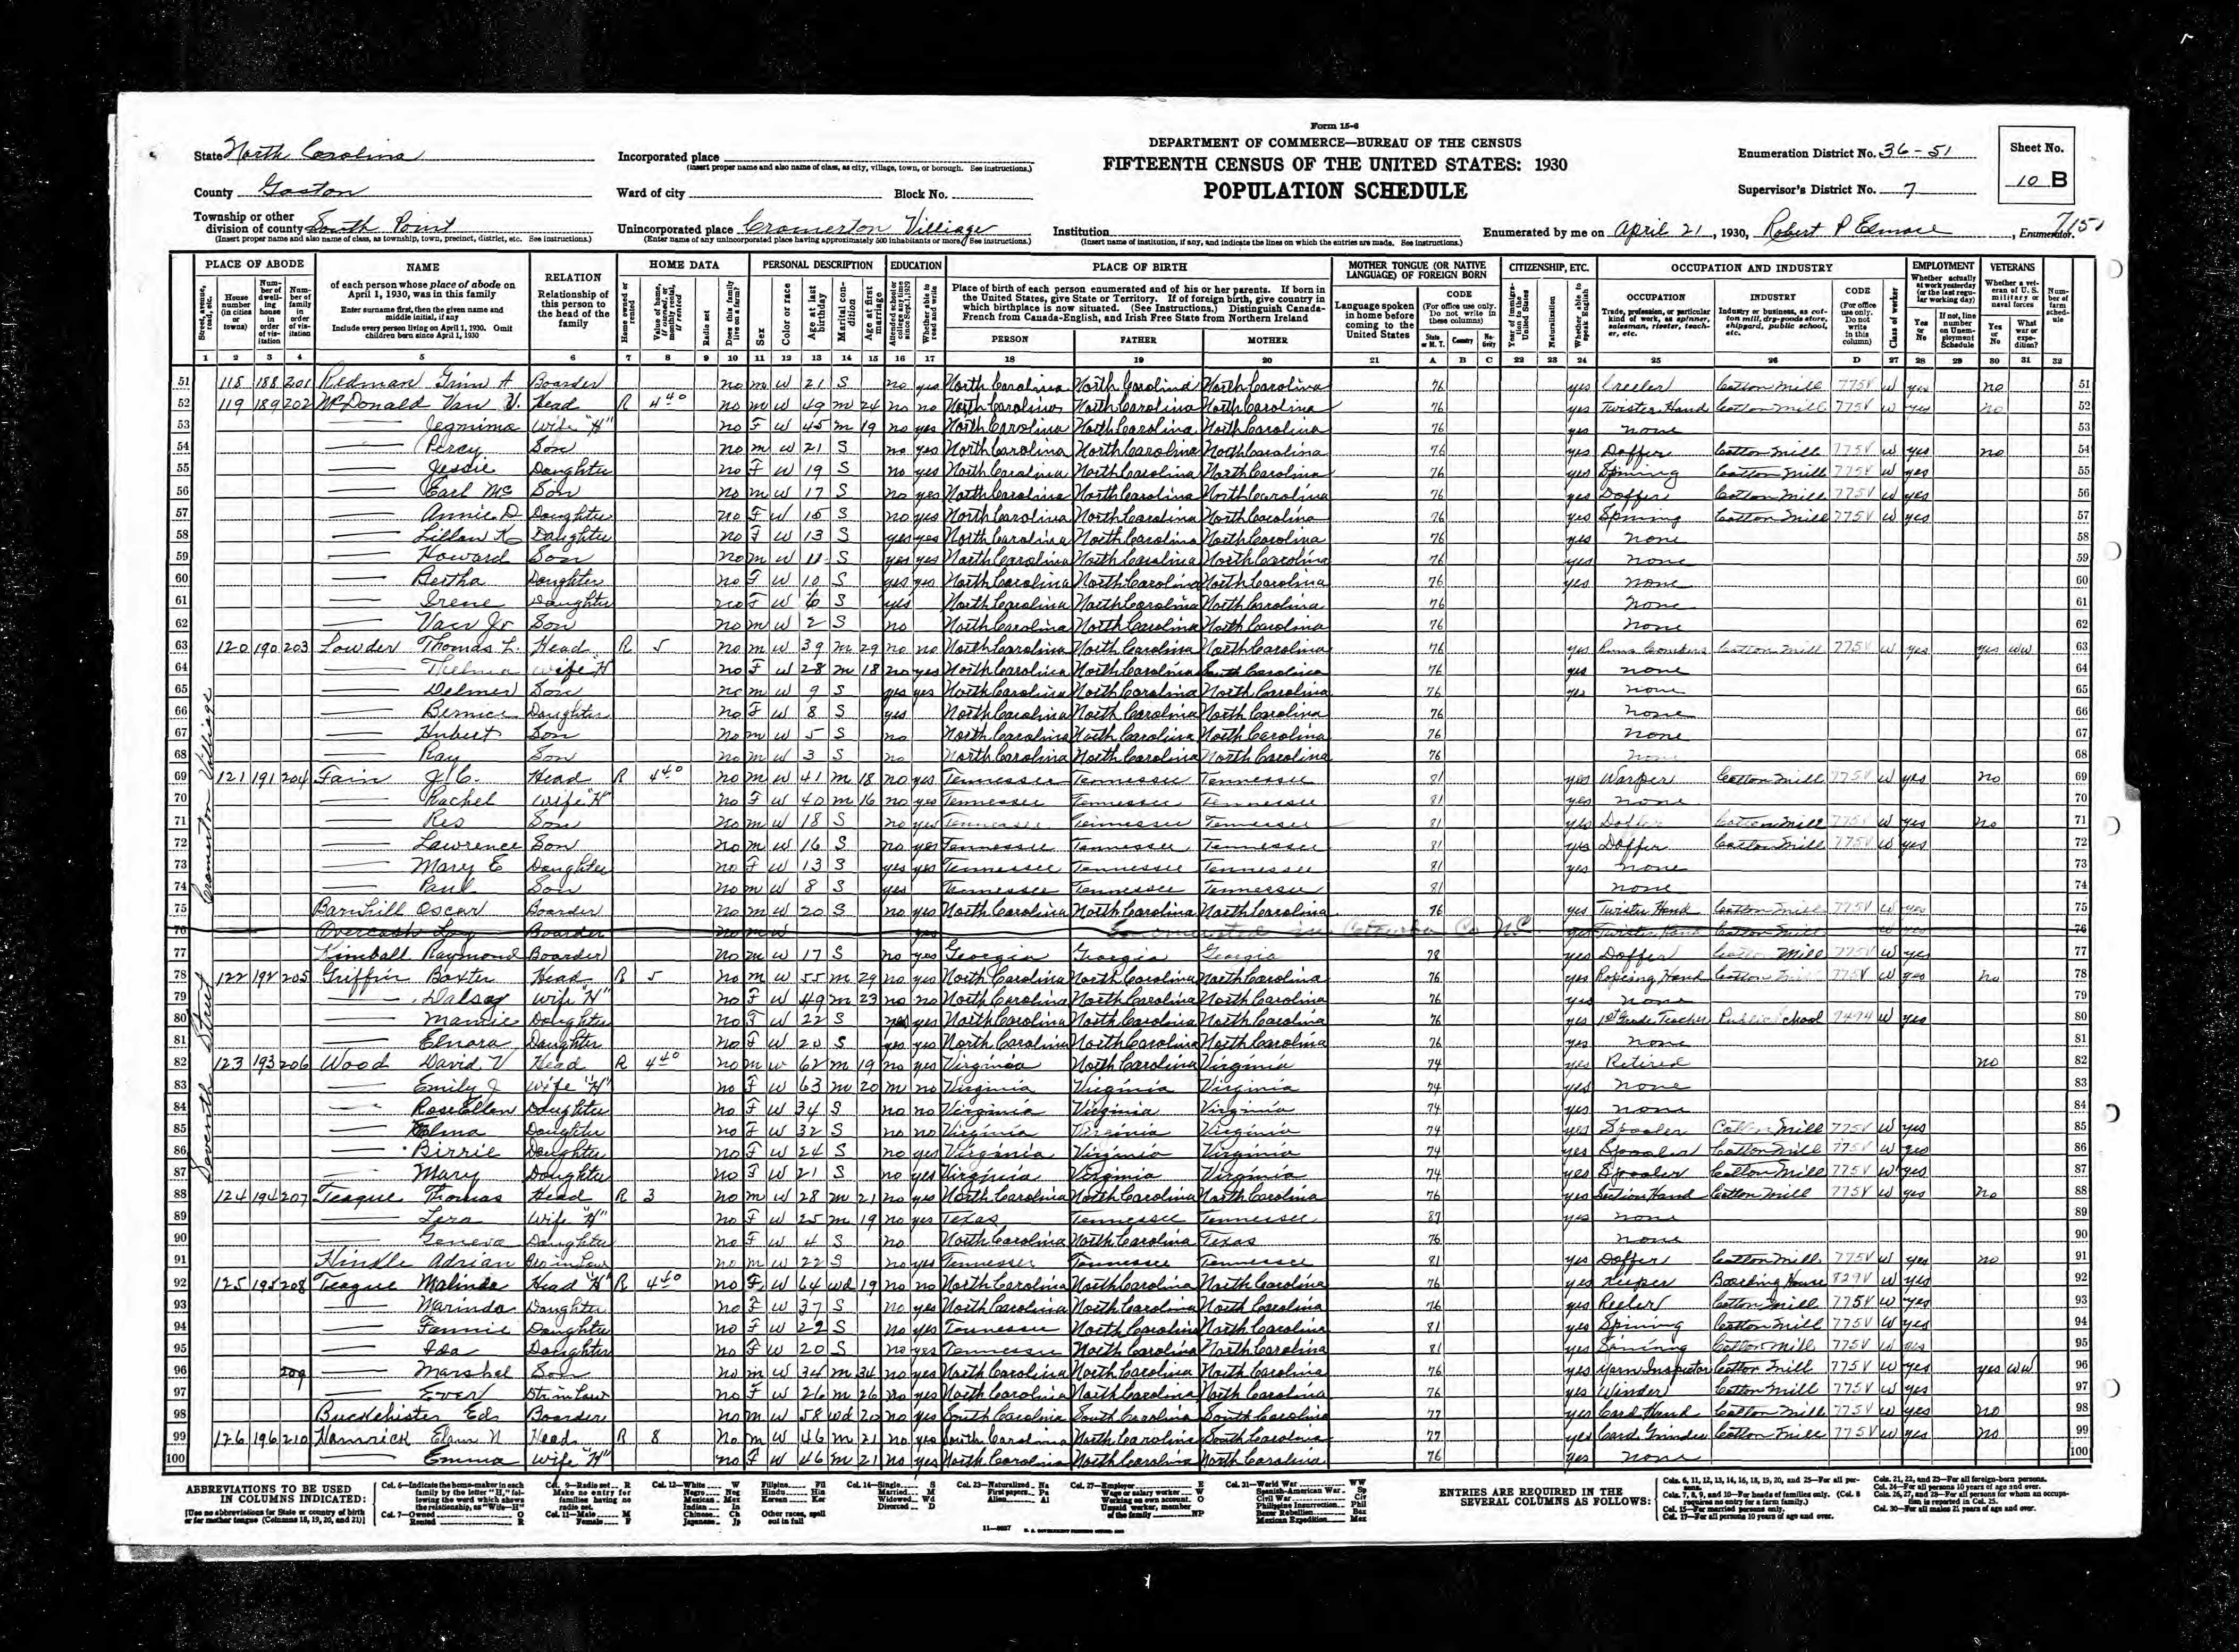 Form 15-6
DEPARTMENT OF COMMERCE—BUREAU OF THE CENSUS
FIFTEENTH CENSUS OF THE UNITED STATES: 1930
POPULATION SCHEDULE
State North Carolina
County Gaston
Township or other division of county South Point
(Insert proper name and also name of class, as township, town, precinct, district, etc. See instructions.)
Incorporated place
(Insert proper name and also name of class, as city, village, town, or borough. See instructions.)
Ward of city Block No.
Unincorporated place Cramerton Villiage
(Enter name of any unincorporated place having approximately 500 inhabitants or more. See instructions.)
Institution
(Insert name of institution, if any, and indicate the lines on which the entries are made. See instructions.)
Enumeration District No. 36-51
Supervisor's District No. 7
Sheet No.
10 B
Enumerated by me on April 21, 1930, Robert P Elmore, Enumerator.
PLACE OF ABODE NAME RELATION HOME DATA PERSONAL DESCRIPTION EDUCATION PLACE OF BIRTH MOTHER TONGUE (OR NATIVE LANGUAGE) OF FOREIGN BORN CITIZENSHIP, ETC. OCCUPATION AND INDUSTRY EMPLOYMENT VETERANS
51 118 188 201 Redman A Boarder no m W 21 S no yes North Carolina North Carolina North Carolina 76 yes Creeler Cotton Mill 775V W yes no 51
52 119 189 202 McDonald Van V. Head R 4.40 no m W 49 m 24 no no North Carolina North Carolina North Carolina 76 yes Twister Hand Cotton Mill 775V W yes no 52
53 Jegmima Wife "H" no F W 45 m 19 no yes North Carolina North Carolina North Carolina 76 yes none 53
54 Percy Son no m W 21 S no yes North Carolina North Carolina North Carolina 76 yes Doffer Cotton Mill 775V W yes no 54
55 Jessie Daughter no F W 19 S no yes North Carolina North Carolina North Carolina 76 yes Spining Cotton Mill 775V W yes 55
56 Earl Mc Son no m W 17 S no yes North Carolina North Carolina North Carolina 76 yes Doffer Cotton Mill 775V W yes 56
57 Annie D Daughter no F W 15 S no yes North Carolina North Carolina North Carolina 76 yes Spining Cotton Mill 775V W yes 57
58 Lillian K Daughter no F W 13 S yes yes North Carolina North Carolina North Carolina 76 yes none 58
59 Howard Son no m W 11 S yes yes North Carolina North Carolina North Carolina 76 yes none 59
60 Bertha Daughter no F W 10 S yes yes North Carolina North Carolina North Carolina 76 yes none 60
61 Irene Daughter no F W 6 S yes North Carolina North Carolina North Carolina 76 none 61
62 Van Jr Son no m W 2 S no North Carolina North Carolina North Carolina 76 none 62
63 120 190 203 Lowder Thomas L. Head R 5 no m W 39 m 29 no no North Carolina North Carolina North Carolina 76 yes Runs Combers Cotton Mill 775V W yes yes WW 63
64 Thelma Wife H no F W 28 m 18 no yes North Carolina North Carolina South Carolina 76 yes none 64
65 Delmer Son no m W 9 S yes yes North Carolina North Carolina North Carolina 76 yes none 65
66 Bernice Daughter no F W 8 S yes North Carolina North Carolina North Carolina 76 none 66
67 Hubert Son no m W 5 S no North Carolina North Carolina North Carolina 76 none 67
68 Ray Son no m W 3 S no North Carolina North Carolina North Carolina 76 none 68
69 121 191 204 Fain J.C. Head R 4.40 no m W 41 m 18 no yes Tennessee Tennessee Tennessee 81 yes Warper Cotton Mill 775V W yes no 69
70 Rachel Wife "H" no F W 40 m 16 no yes Tennessee Tennessee Tennessee 81 yes none 70
71 Res Son no m W 18 S no yes Tennessee Tennessee Tennessee 81 yes Doffer Cotton Mill 775V W yes no 71
72 Lawrence Son no m W 16 S no yes Tennessee Tennessee Tennessee 81 yes Doffer Cotton Mill 775V W yes 72
73 Mary E Daughter no F W 13 S yes yes Tennessee Tennessee Tennessee 81 yes none 73
74 Paul Son no m W 8 S yes Tennessee Tennessee Tennessee 81 none 74
75 Barnhill Oscar Boarder no m W 20 S no yes North Carolina North Carolina North Carolina 76 yes Twister Hand Cotton Mill 775V W yes 75
76 Overcash Loy Boarder no m W yes Enumerated in Catawba Co NC yes Twister Hand Cotton Mill W yes 76
77 Kimball Raymond Boarder no m W 17 S no yes Georgia Georgia Georgia 78 yes Doffer Cotton Mill 775V W yes 77
78 122 192 205 Griffin Baxter Head R 5 no m W 55 m 29 no yes North Carolina North Carolina North Carolina 76 yes Roping Hand Cotton Mill 775V W yes no 78
79 Dalsay Wife "H" no F W 49 m 23 no no North Carolina North Carolina North Carolina 76 yes none 79
80 Mannie Daughter no F W 22 S yes yes North Carolina North Carolina North Carolina 76 yes 1st Grade Teacher Public School 9494 W yes 80
81 Elnora Daughter no F W 20 S yes yes North Carolina North Carolina North Carolina 76 yes none 81
82 123 193 206 Wood David V Head R 4.40 no m W 62 m 19 no yes Virginia North Carolina Virginia 74 yes Retired no 82
83 Emily J Wife "H" no F W 63 m 20 m no Virginia Virginia Virginia 74 yes none 83
84 Rose Ellen Daughter no F W 34 S no no Virginia Virginia Virginia 74 yes none 84
85 Elma Daughter no F W 32 S no no Virginia Virginia Virginia 74 yes Spooler Cotton Mill 775V W yes 85
86 Birrie Daughter no F W 24 S no yes Virginia Virginia Virginia 74 yes Spooler Cotton Mill 775V W yes 86
87 Mary Daughter no F W 21 S no yes Virginia Virginia Virginia 74 yes Spooler Cotton Mill 775V W yes 87
88 124 194 207 Teague Thomas Head R 3 no m W 28 m 21 no yes North Carolina North Carolina North Carolina 76 yes Section Hand Cotton Mill 775V W yes no 88
89 Lera Wife "H" no F W 25 m 19 no yes Texas Tennessee Tennessee 87 yes none 89
90 Geneva Daughter no F W 4 S no North Carolina North Carolina Texas 76 none 90
91 Hindle Adrian Bro in Law no m W 22 S no yes Tennessee Tennessee Tennessee 81 yes Doffer Cotton Mill 775V W yes no 91
92 125 195 208 Teague Malinda Head "H" R 4.40 no F W 64 wd 19 no no North Carolina North Carolina North Carolina 76 yes Keeper Boarding House 829V W yes 92
93 Marinda Daughter no F W 37 S no yes North Carolina North Carolina North Carolina 76 yes Reeler Cotton Mill 775V W yes 93
94 Fannie Daughter no F W 22 S no yes Tennessee North Carolina North Carolina 81 yes Spining Cotton Mill 775V W yes 94
95 Ida Daughter no F W 20 S no yes Tennessee North Carolina North Carolina 81 yes Spining Cotton Mill 775V W yes 95
96 209 Marshel Son no m W 34 m 34 no yes North Carolina North Carolina North Carolina 76 yes Yarn Inspector Cotton Mill 775V W yes yes WW 96
97 Ever no F W 26 m 26 no yes North Carolina North Carolina North Carolina 76 yes Winder Cotton Mill 775V W yes 97
98 Ed Boarder no m W 58 wd 20 no yes South Carolina South Carolina South Carolina 77 yes Card Hand Cotton Mill 775V W yes no 98
99 126 196 210 Hamrick N Head R 8 no m W 46 m 21 no yes South Carolina North Carolina South Carolina 77 yes Card Grinder Cotton Mill 775V W yes no 99
100 Emma Wife "H" no F W 46 m 21 no yes North Carolina North Carolina North Carolina 76 yes none 100
Cramerton Villiage
Seventh Street
ABBREVIATIONS TO BE USED IN COLUMNS INDICATED:
[Use no abbreviations for State or country of birth or for mother tongue (Columns 18, 19, 20, and 21)]
ENTRIES ARE REQUIRED IN THE SEVERAL COLUMNS AS FOLLOWS: